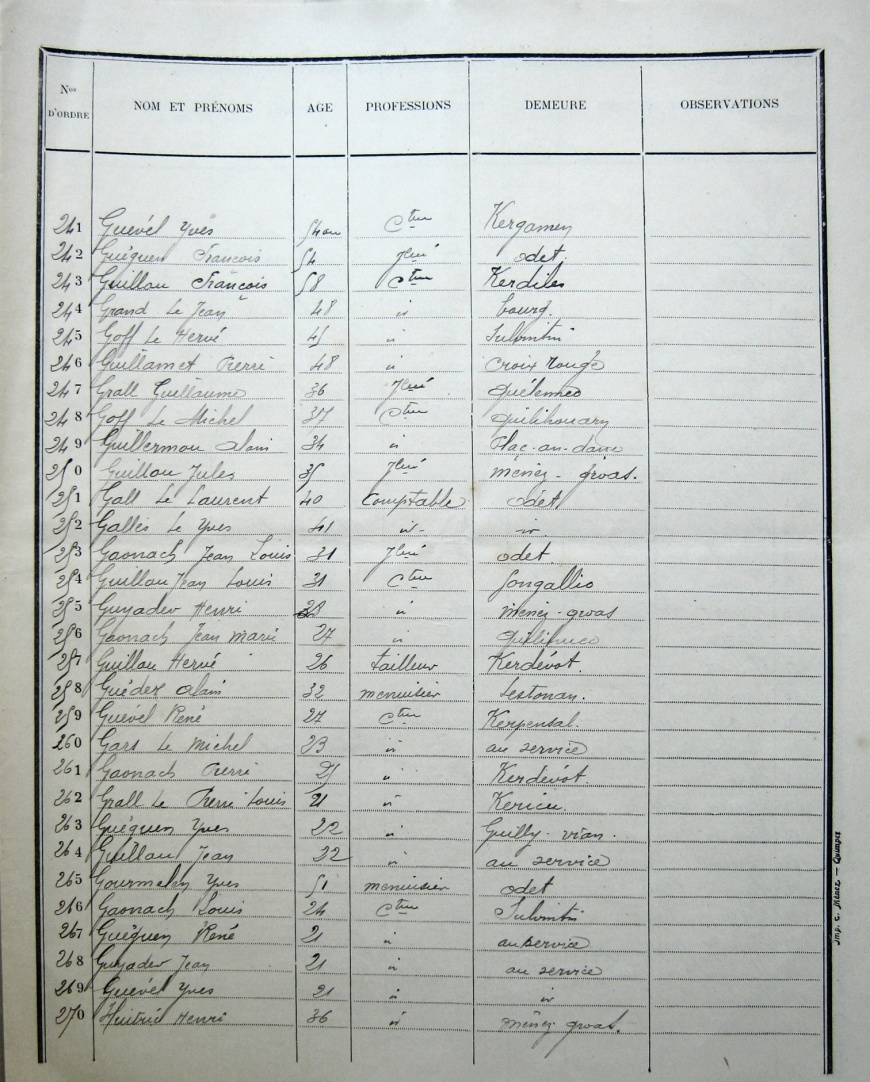 Nos D'ORDRE NOM ET PRÉNOMS AGE PROFESSIONS DEMEURE OBSERVATIONS
241 Guével Yves 54 an Cteur Kergamen
242 Guéguen François 54 Jlier odet
243 Guillou François 58 Cteur Kerdiles
244 Grand Le Jean 48 " bourg.
245 Goff Le Hervé 45 " Sulvintin
246 Guillamet Pierre 48 " Croix Rouge
247 Grall Guillaume 36 Quélennec
248 Goff Le Michel 37 Cteur Quilihouarn
249 Guillermou Alain 34 "
250 Guillou Jules 35 menez-groas.
251 Gall Le Laurent 40 Comptable odet
252 Gallès Le Yves 41 " "
253 Gaonach Jean Louis 31 odet.
254 Guillou Jean Louis 31 Cteur Gongallic
255 Guyader Henri 28 " menez-groas
256 Gaonach Jean Marie 27 "
257 Guillou Hervé 26 tailleur Kerdévot.
258 Guédez Alain 32 menuisier Lestonan.
259 Guével René 27 Cteur Kerpensal.
260 Gars Le Michel 23 " au service
261 Gaonach Pierre 25 " Kerdévot.
262 Grall Le Pierre Louis 21 "
263 Guéguen Yves 22 " Guilly-vian.
264 Guillou Jean 22 " au service
265 Gourmelen Yves 51 menuisier odet
266 Gaonach Louis 24 Cteur Sulvintin
267 Guéguen René 21 " au service
268 Guyader Jean 21 " au service
269 Guével Yves 21 " "
270 Huitric Henri 36 " menez groas.
Imp. C. Ménez — Quimper